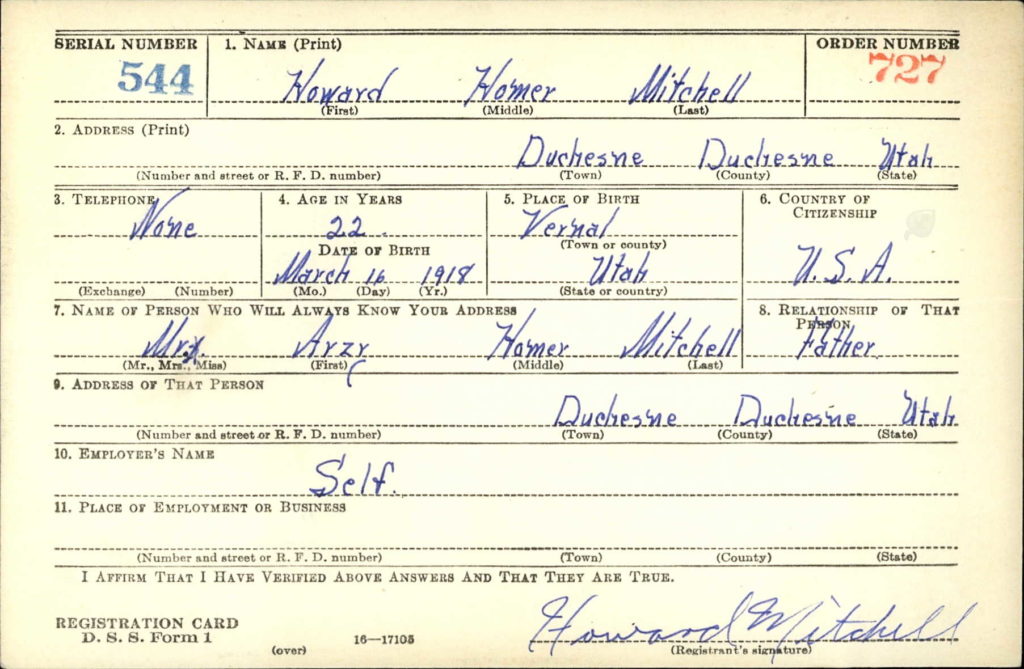 SERIAL NUMBER 1. NAME (Print) ORDER NUMBER
544 Howard Homer Mitchell 727
(First) (Middle) (Last)
2. ADDRESS (Print)
Duchesne Duchesne Utah
(Number and street or R. F. D. number) (Town) (County) (State)
3. TELEPHONE 4. AGE IN YEARS 5. PLACE OF BIRTH 6. COUNTRY OF CITIZENSHIP
None 22 Vernal
DATE OF BIRTH (Town or county)
March 16 1918 Utah U.S.A.
(Exchange) (Number) (Mo.) (Day) (Yr.) (State or country)
7. NAME OF PERSON WHO WILL ALWAYS KNOW YOUR ADDRESS 8. RELATIONSHIP OF THAT PERSON
Mr. Arzy Homer Mitchell Father
(Mr., Mrs., Miss) (First) (Middle) (Last)
9. ADDRESS OF THAT PERSON
Duchesne Duchesne Utah
(Number and street or R. F. D. number) (Town) (County) (State)
10. EMPLOYER'S NAME
Self.
11. PLACE OF EMPLOYMENT OR BUSINESS
(Number and street or R. F. D. number) (Town) (County) (State)
I AFFIRM THAT I HAVE VERIFIED ABOVE ANSWERS AND THAT THEY ARE TRUE.
REGISTRATION CARD
D. S. S. Form 1 16—17105 Howard Mitchell
(over) (Registrant's signature)